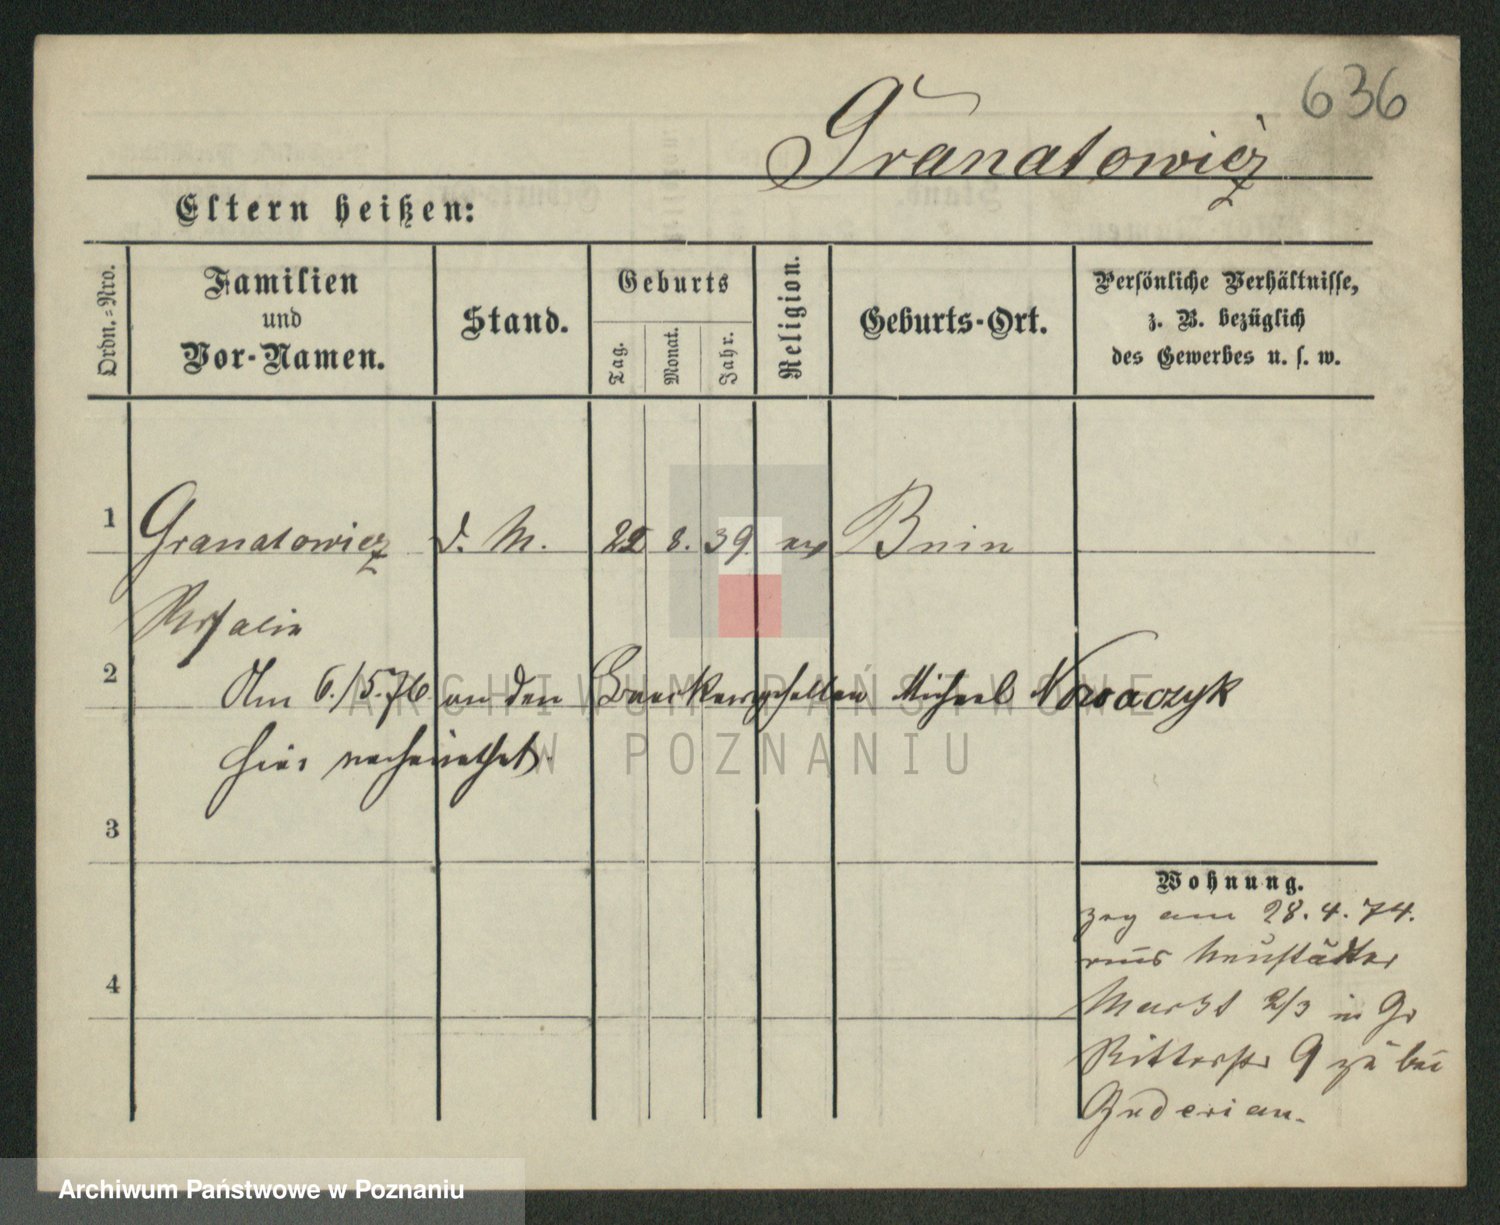 636
Granatowicz
Eltern heißen:
Ordn.-Nro.
Familien
und
Vor-Namen.
Stand.
Geburts
Tag.
Monat.
Jahr.
Religion.
Geburts-Ort.
Persönliche Verhältnisse,
z. B. bezüglich
des Gewerbes u. s. w.
1
Granatowicz d. M. 22 8. 39. Bnin
Rosalie
2
Am 6./5.76 an den Baeckergesellen Michael Nowaczyk
hier verheirathet.
3
4
Wohnung.
zog am 28.4.74.
aus Neustädter
Markt 2/3 in Gr
Ritterstr 9 zu bei
Guderian.
ARCHIWUM PAŃSTWOWE
W POZNANIU
Archiwum Państwowe w Poznaniu